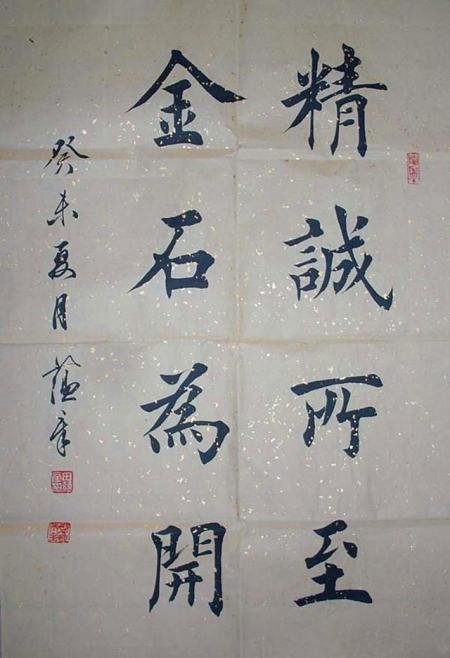 精誠所至
金石為開
癸未夏月蘊章